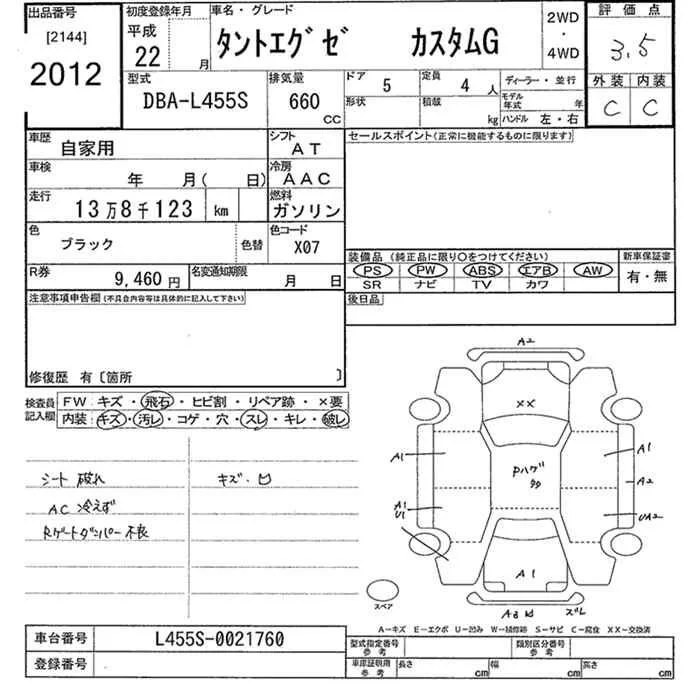 出品番号 初度登録年月 車名・グレード 2WD ・ 4WD 評価点
[2144] 平成 22 月 タントエグゼ カスタムG 3.5
2012
型式 排気量 ドア 5 定員 4 人 ディーラー・並行 外装 内装
DBA-L455S 660 CC 形状 積載 kg モデル年式 年 C C
ハンドル 左・右
車歴 自家用 シフト AT セールスポイント(正常に機能するものに限ります)
車検 年 月( 日) 冷房 AAC
走行 13万8千123 km 燃料 ガソリン
色 ブラック 色替 色コード X07
装備品(純正品に限り○をつけてください) 新車保証書
R券 9,460円 名変通知期限 月 日 PS PW ABS エアB AW 有・無
SR ナビ TV カワ
注意事項申告欄(不具合内容等は具体的に記入して下さい) 後日品
修復歴 有〔箇所 〕
検査員記入欄 FW キズ・飛石・ヒビ割・リペア跡・×要
内装 キズ・汚レ・コゲ・穴・スレ・キレ・破レ
シート 破れ キズ・凹
AC 冷えず
Rゲートダンパー不良
A2
XX
A1 A1
Pハゲ
A2
A1
U1 UA2
A1
スペア
A-キズ E-エクボ U-凹み W-補修跡 S-サビ C-腐食 XX-交換済
車台番号 L455S-0021760 型式指定番号 参考 類別区分番号 参考
登録番号 車庫証明用 参考 長さ cm 幅 cm 高さ cm